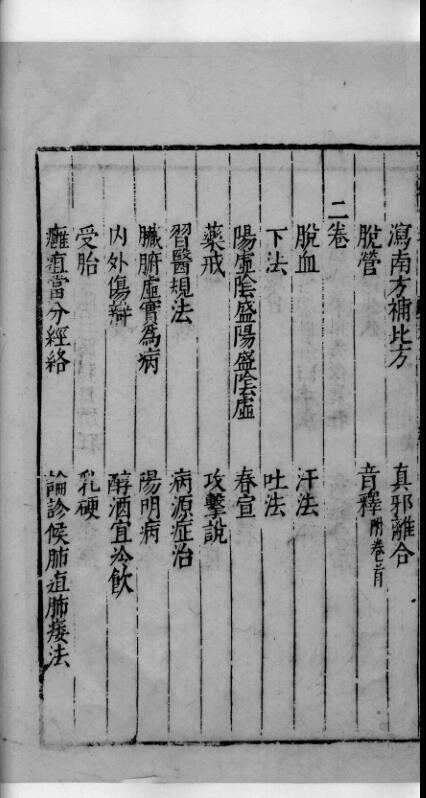 瀉南方補北方　真邪離合
脫營　音釋附卷首
二卷
脫血　汗法
下法　吐法
陽虛陰盛陽盛陰虛　春宣
藥戒　攻擊說
習醫規法　病源症治
臟腑虛實為病　陽明病
內外傷辯　醇酒宜冷飲
受胎　乳硬
癰疽當分經絡　論診候肺疽肺痿法